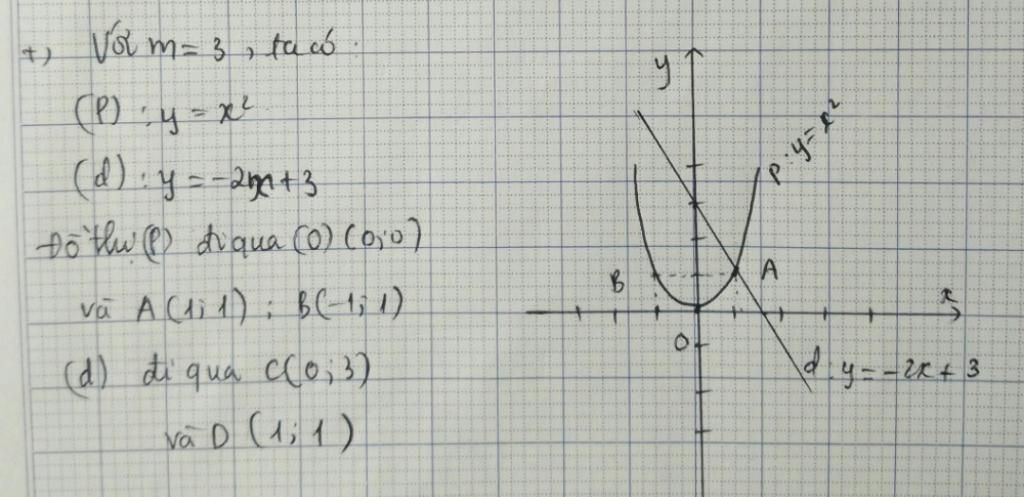 +, Với m = 3, ta có:
(P) : y = x²
(d) : y = -2x + 3
Đồ thị (P) đi qua (O) (0;0)
và A (1; 1) ; B(-1; 1)
(d) đi qua C(0; 3)
và D (1; 1)
y
P : y = x²
B
A
x
O
d : y = -2x + 3